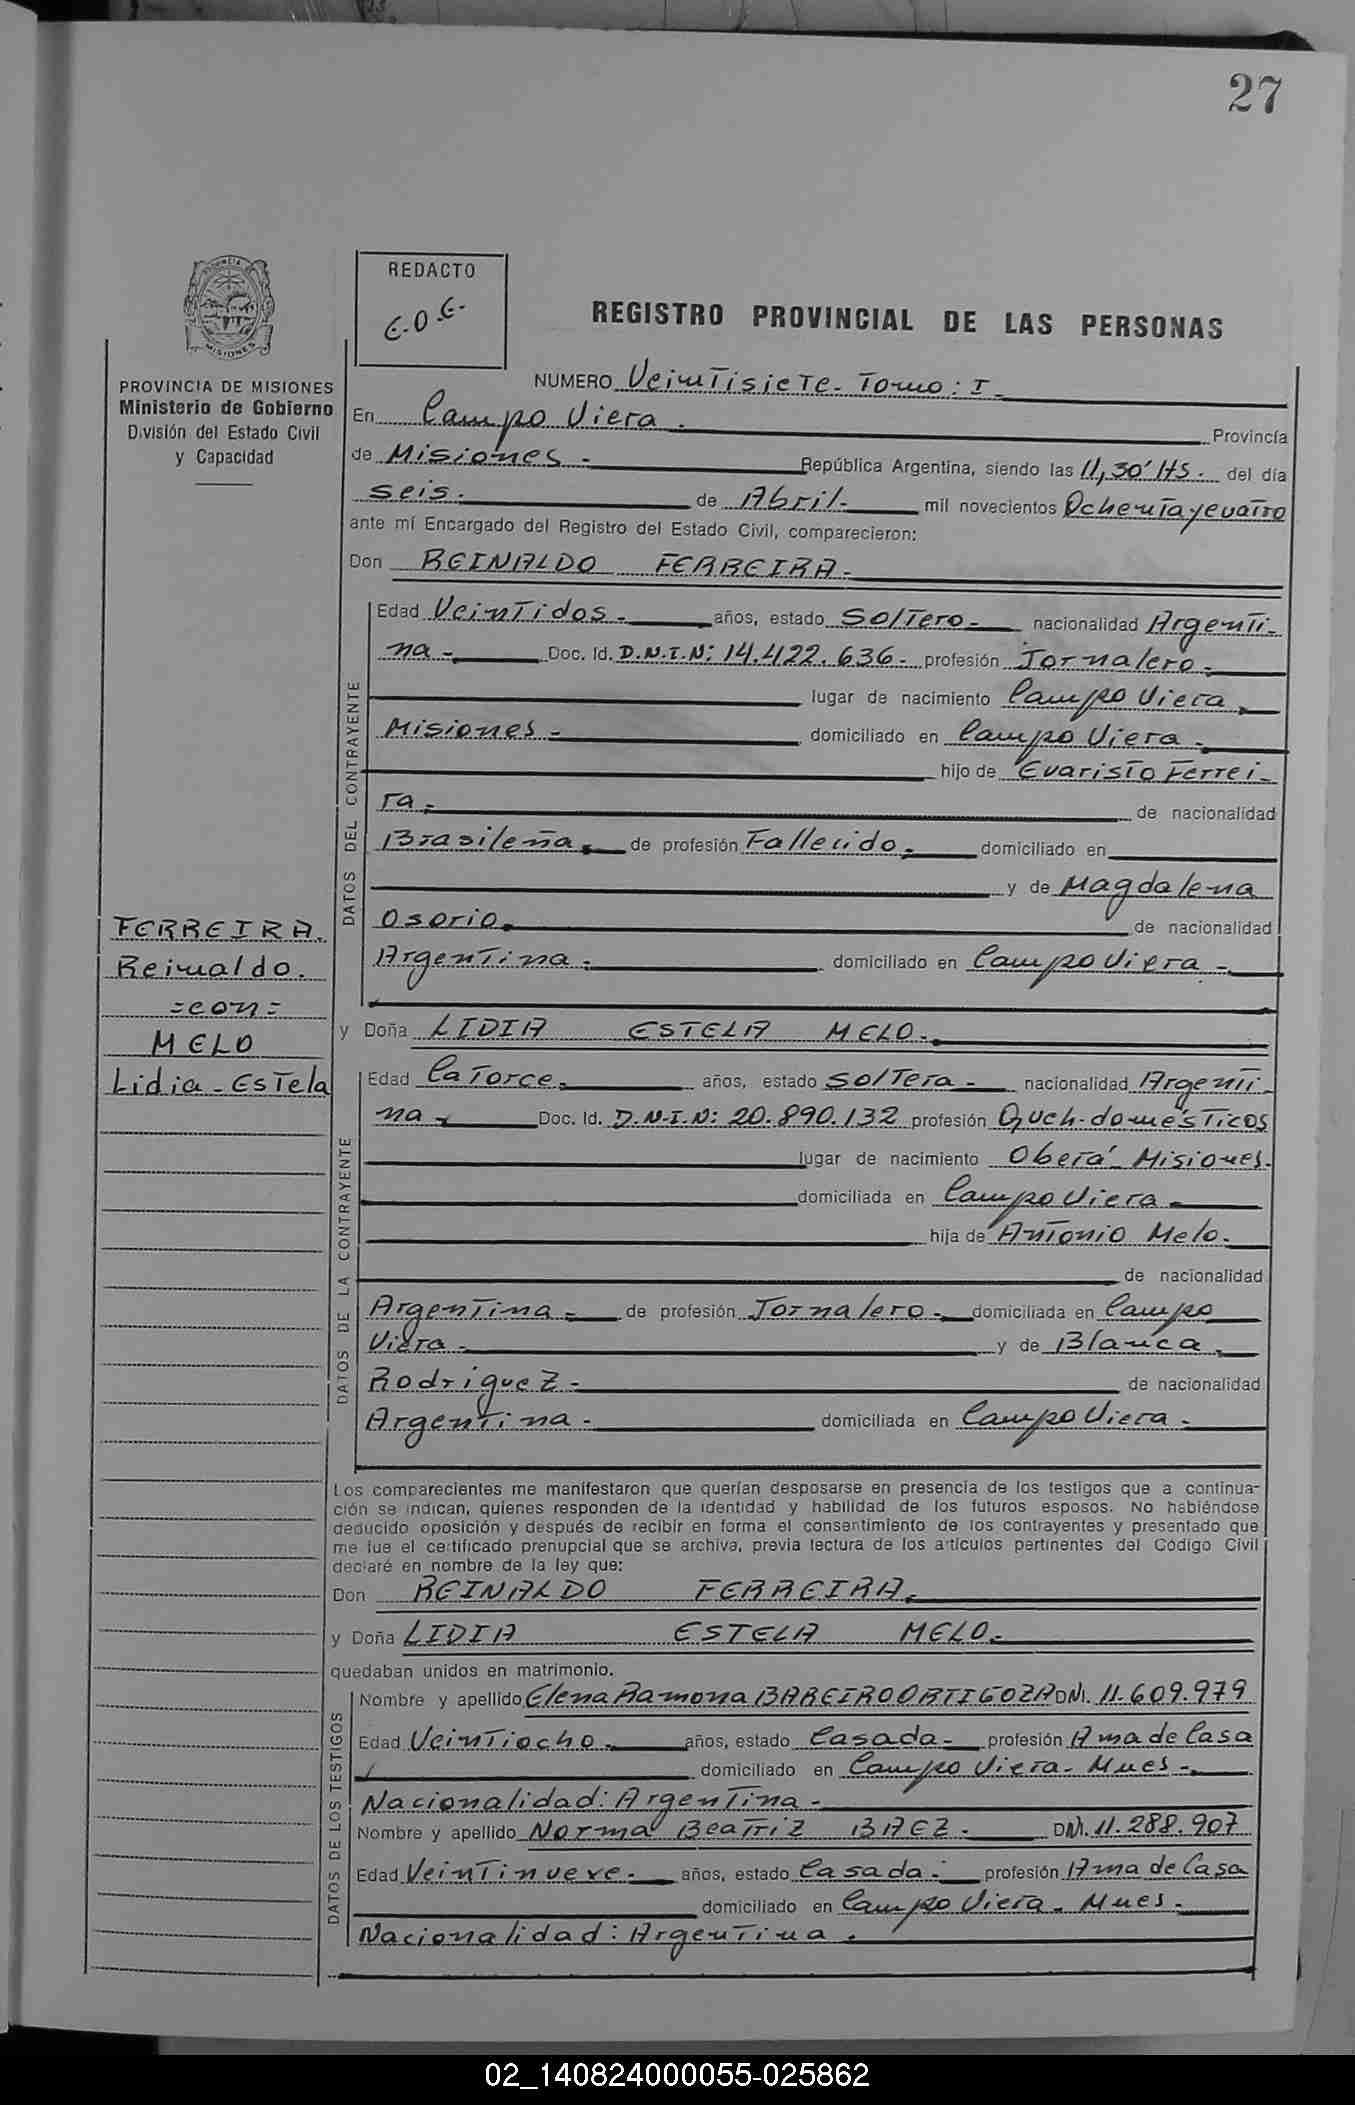 27
PROVINCIA DE MISIONES
MISIONES
PROVINCIA DE MISIONES
Ministerio de Gobierno
División del Estado Civil
y Capacidad
REDACTO
REGISTRO PROVINCIAL DE LAS PERSONAS
NUMERO Veintisiete - Tomo: I -
En Campo Viera . Provincia
de Misiones - República Argentina, siendo las 11,30' Hs. del día
seis. de Abril - mil novecientos Ochenta y cuatro
ante mí Encargado del Registro del Estado Civil, comparecieron:
Don REINALDO FERREIRA -
DATOS DEL CONTRAYENTE
Edad Veintidos - años, estado Soltero - nacionalidad Argenti-
na - Doc. Id. D.N.I.N: 14.422.636 - profesión Jornalero -
lugar de nacimiento Campo Viera
Misiones - domiciliado en Campo Viera -
hijo de Evaristo Ferrei-
ra - de nacionalidad
Brasileña - de profesión Fallecido - domiciliado en
y de Magdalena
Osorio de nacionalidad
Argentina - domiciliado en Campo Viera -
FERREIRA
Reinaldo.
=con=
MELO
Lidia - Estela
y Doña LIDIA ESTELA MELO -
DATOS DE LA CONTRAYENTE
Edad Catorce - años, estado Soltera - nacionalidad Argenti-
na - Doc. Id. D.N.I.N: 20.890.132 profesión Queh-domésticos
lugar de nacimiento Oberá - Misiones.
domiciliada en Campo Viera -
hija de Antonio Melo -
de nacionalidad
Argentina - de profesión Jornalero - domiciliada en Campo
Viera - y de Blanca
Rodriguez - de nacionalidad
Argentina - domiciliada en Campo Viera -
Los comparecientes me manifestaron que querían desposarse en presencia de los testigos que a continua-
ción se indican, quienes responden de la identidad y habilidad de los futuros esposos. No habiéndose
deducido oposición y después de recibir en forma el consentimiento de los contrayentes y presentado que
me fue el certificado prenupcial que se archiva, previa lectura de los artículos pertinentes del Código Civil
declaré en nombre de la ley que:
Don REINALDO FERREIRA
y Doña LIDIA ESTELA MELO -
quedaban unidos en matrimonio.
DATOS DE LOS TESTIGOS
Nombre y apellido Elena Ramona BAREIRO ORTIGOZA DNI. 11.609.979
Edad Veintiocho - años, estado Casada - profesión Ama de Casa
domiciliado en Campo Viera - Mnes -
Nacionalidad: Argentina -
Nombre y apellido Norma Beatriz BAEZ - DNI. 11.288.907
Edad Veintinueve - años, estado Casada - profesión Ama de Casa
domiciliado en Campo Viera - Mnes -
Nacionalidad: Argentina .
02_140824000055-025862